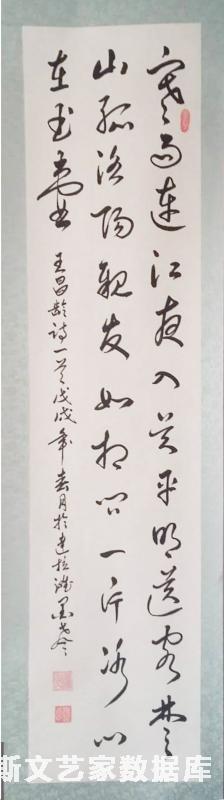 寒雨連江夜入吴平明送客楚
山孤洛陽親友如相问一片冰心
在玉壶
王昌龄诗一首戊戌年春月於達拉
斯文艺家数据库